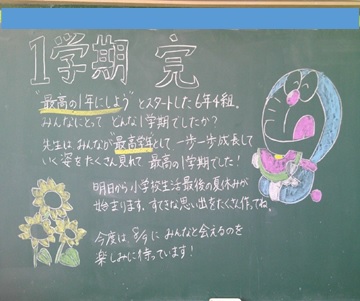 1学期 完
"最高の1年にしよう"とスタートした6年4組。
みんなにとって どんな1学期でしたか？
先生は、みんなが"最高学年"として 一歩一歩成長して
いく姿をたくさん見れて 最高の1学期でした！
明日から小学校生活最後の夏休みが
始まります。すてきな思い出をたくさん作ってね。
今度は、8/ に みんなと会えるのを
楽しみに待っています！